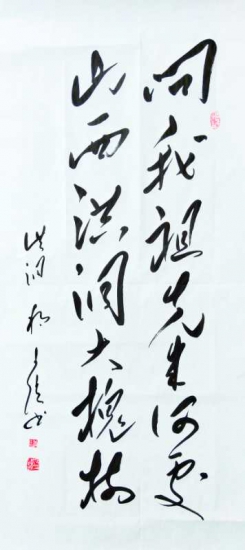 问我祖先来何处
山西洪洞大槐树
洪洞